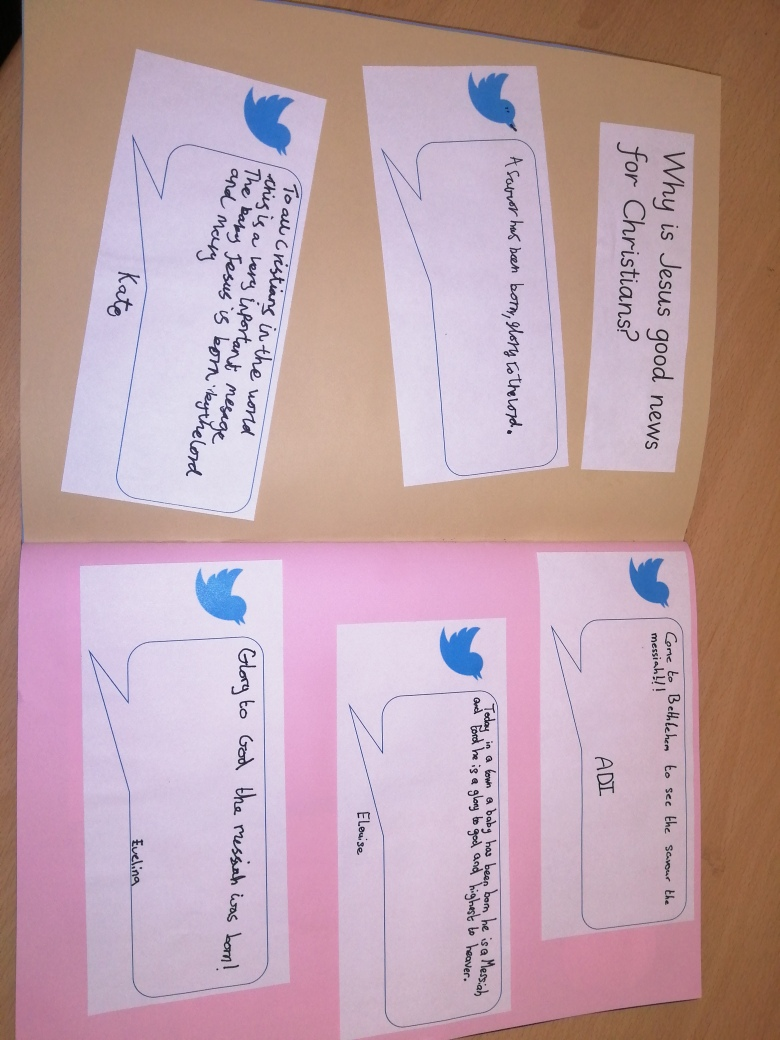 Why is Jesus good news
for Christians?
A savior has been born, glory to the lord.
To all Cristians in the world
this is a very inportant mesage
The baby Jesus is born by the lord
and mary
Kate
Come to Bethlehem to see the savour the
messiah!!!
ADI
Today in a town a baby has been born he is a Messiah
and lord he is a glory to god and highest to heaver.
Elouise
Glory to God the messiah was born!
Evelina